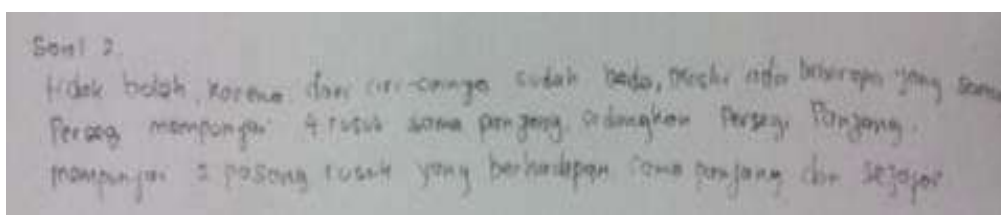 Soal 2.
tidak boleh, karena dari ciri-cirinya sudah beda, meski ada beberapa yang sama
Persegi mempunyai 4 rusuk sama panjang. sedangkan Persegi Panjang.
mempunyai 2 pasang rusuk yang berhadapan sama panjang dan sejajar